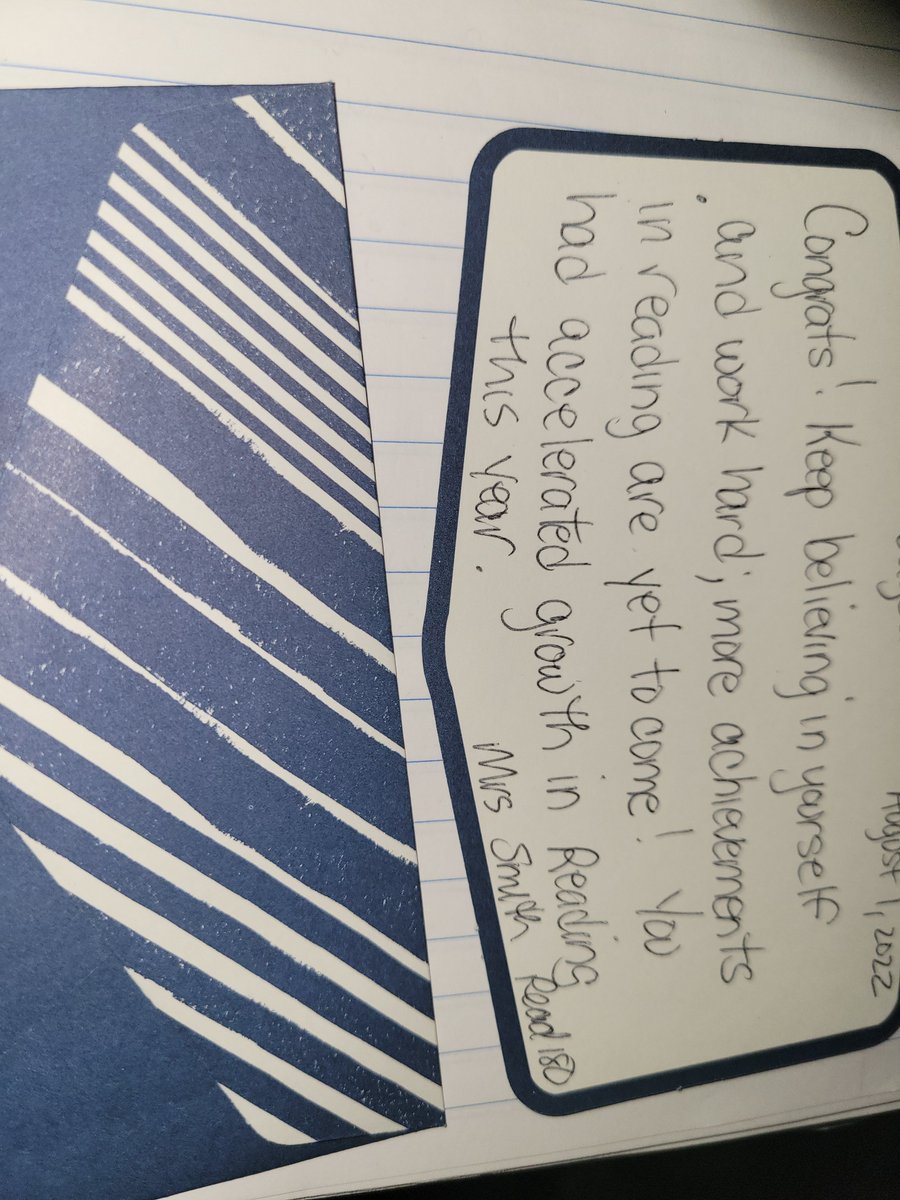 August 1, 2022
Congrats! Keep believing in yourself
and work hard; more achievements
in reading are yet to come! You
had accelerated growth in Reading
this year. Mrs Smith Read 180